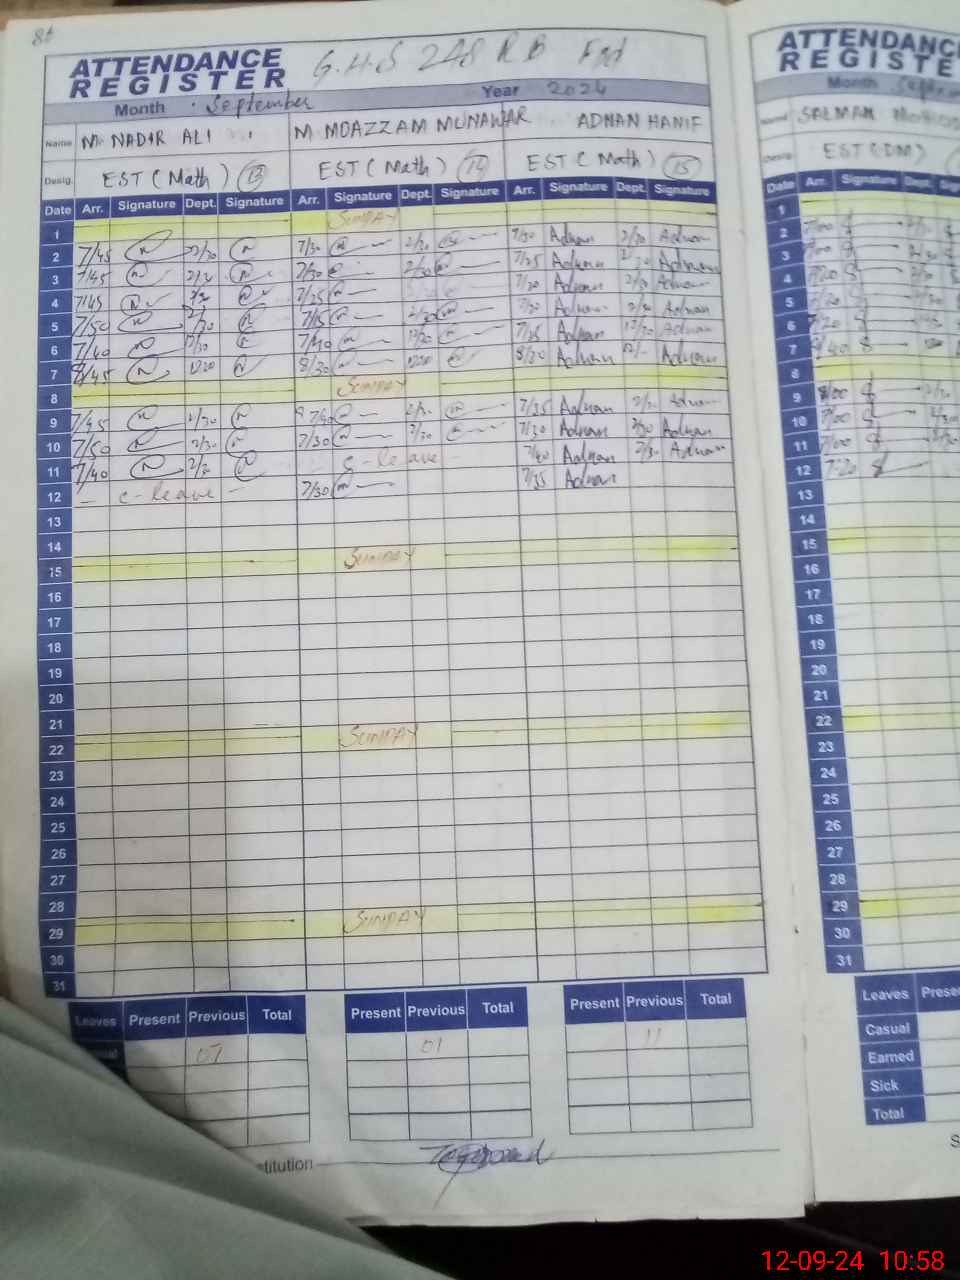 84
ATTENDANCE REGISTER G.H.S 248 RB Fsd
Month September Year 2024
Name M. NADIR ALI M MOAZZAM MUNAWAR ADNAN HANIF
Desig. EST (Math) 13 EST (Math) 14 EST (Math) 15
Date Arr. Signature Dept. Signature Arr. Signature Dept. Signature Arr. Signature Dept. Signature
1 SUNDAY
2 7/45 2/30 7/30 2/30 7/30 Adnan 2/30 Adnan
3 7/45 7/30 2/30 7/25 Adnan Adnan
4 7/45 7/25 7/20 Adnan 2/30 Adnan
5 7/50 7/15 2/30 7/20 Adnan 2/30 Adnan
6 7/40 12/30 7/40 12/30 7/25 Adnan 12/30 Adnan
7 8/45 8/30 8/20 Adnan Adnan
8 SUNDAY
9 7/45 2/30 7/40 2/30 7/35 Adnan 2/30 Adnan
10 7/50 2/30 7/30 2/30 7/30 Adnan 2/30 Adnan
11 7/40 2/30 c-leave 7/40 Adnan 2/30 Adnan
12 - c-leave - 7/30 7/35 Adnan
13
14
15 SUNDAY
16
17
18
19
20
21
22 SUNDAY
23
24
25
26
27
28
29 SUNDAY
30
31
Leaves Present Previous Total Present Previous Total Present Previous Total
07 01 11
stitution
ATTENDANC
REGISTE
Month
Name SALMAN
Desig. EST (DM)
Date Arr. Signature Dept.
1
2 7/00
3 7/00
4 7/20
5 7/20
6 7/20
7
8
9 8/00
10 7/00
11 7/00
12 7:20
13
14
15
16
17
18
19
20
21
22
23
24
25
26
27
28
29
30
31
Leaves Prese
Casual
Earned
Sick
Total
S
12-09-24 10:58